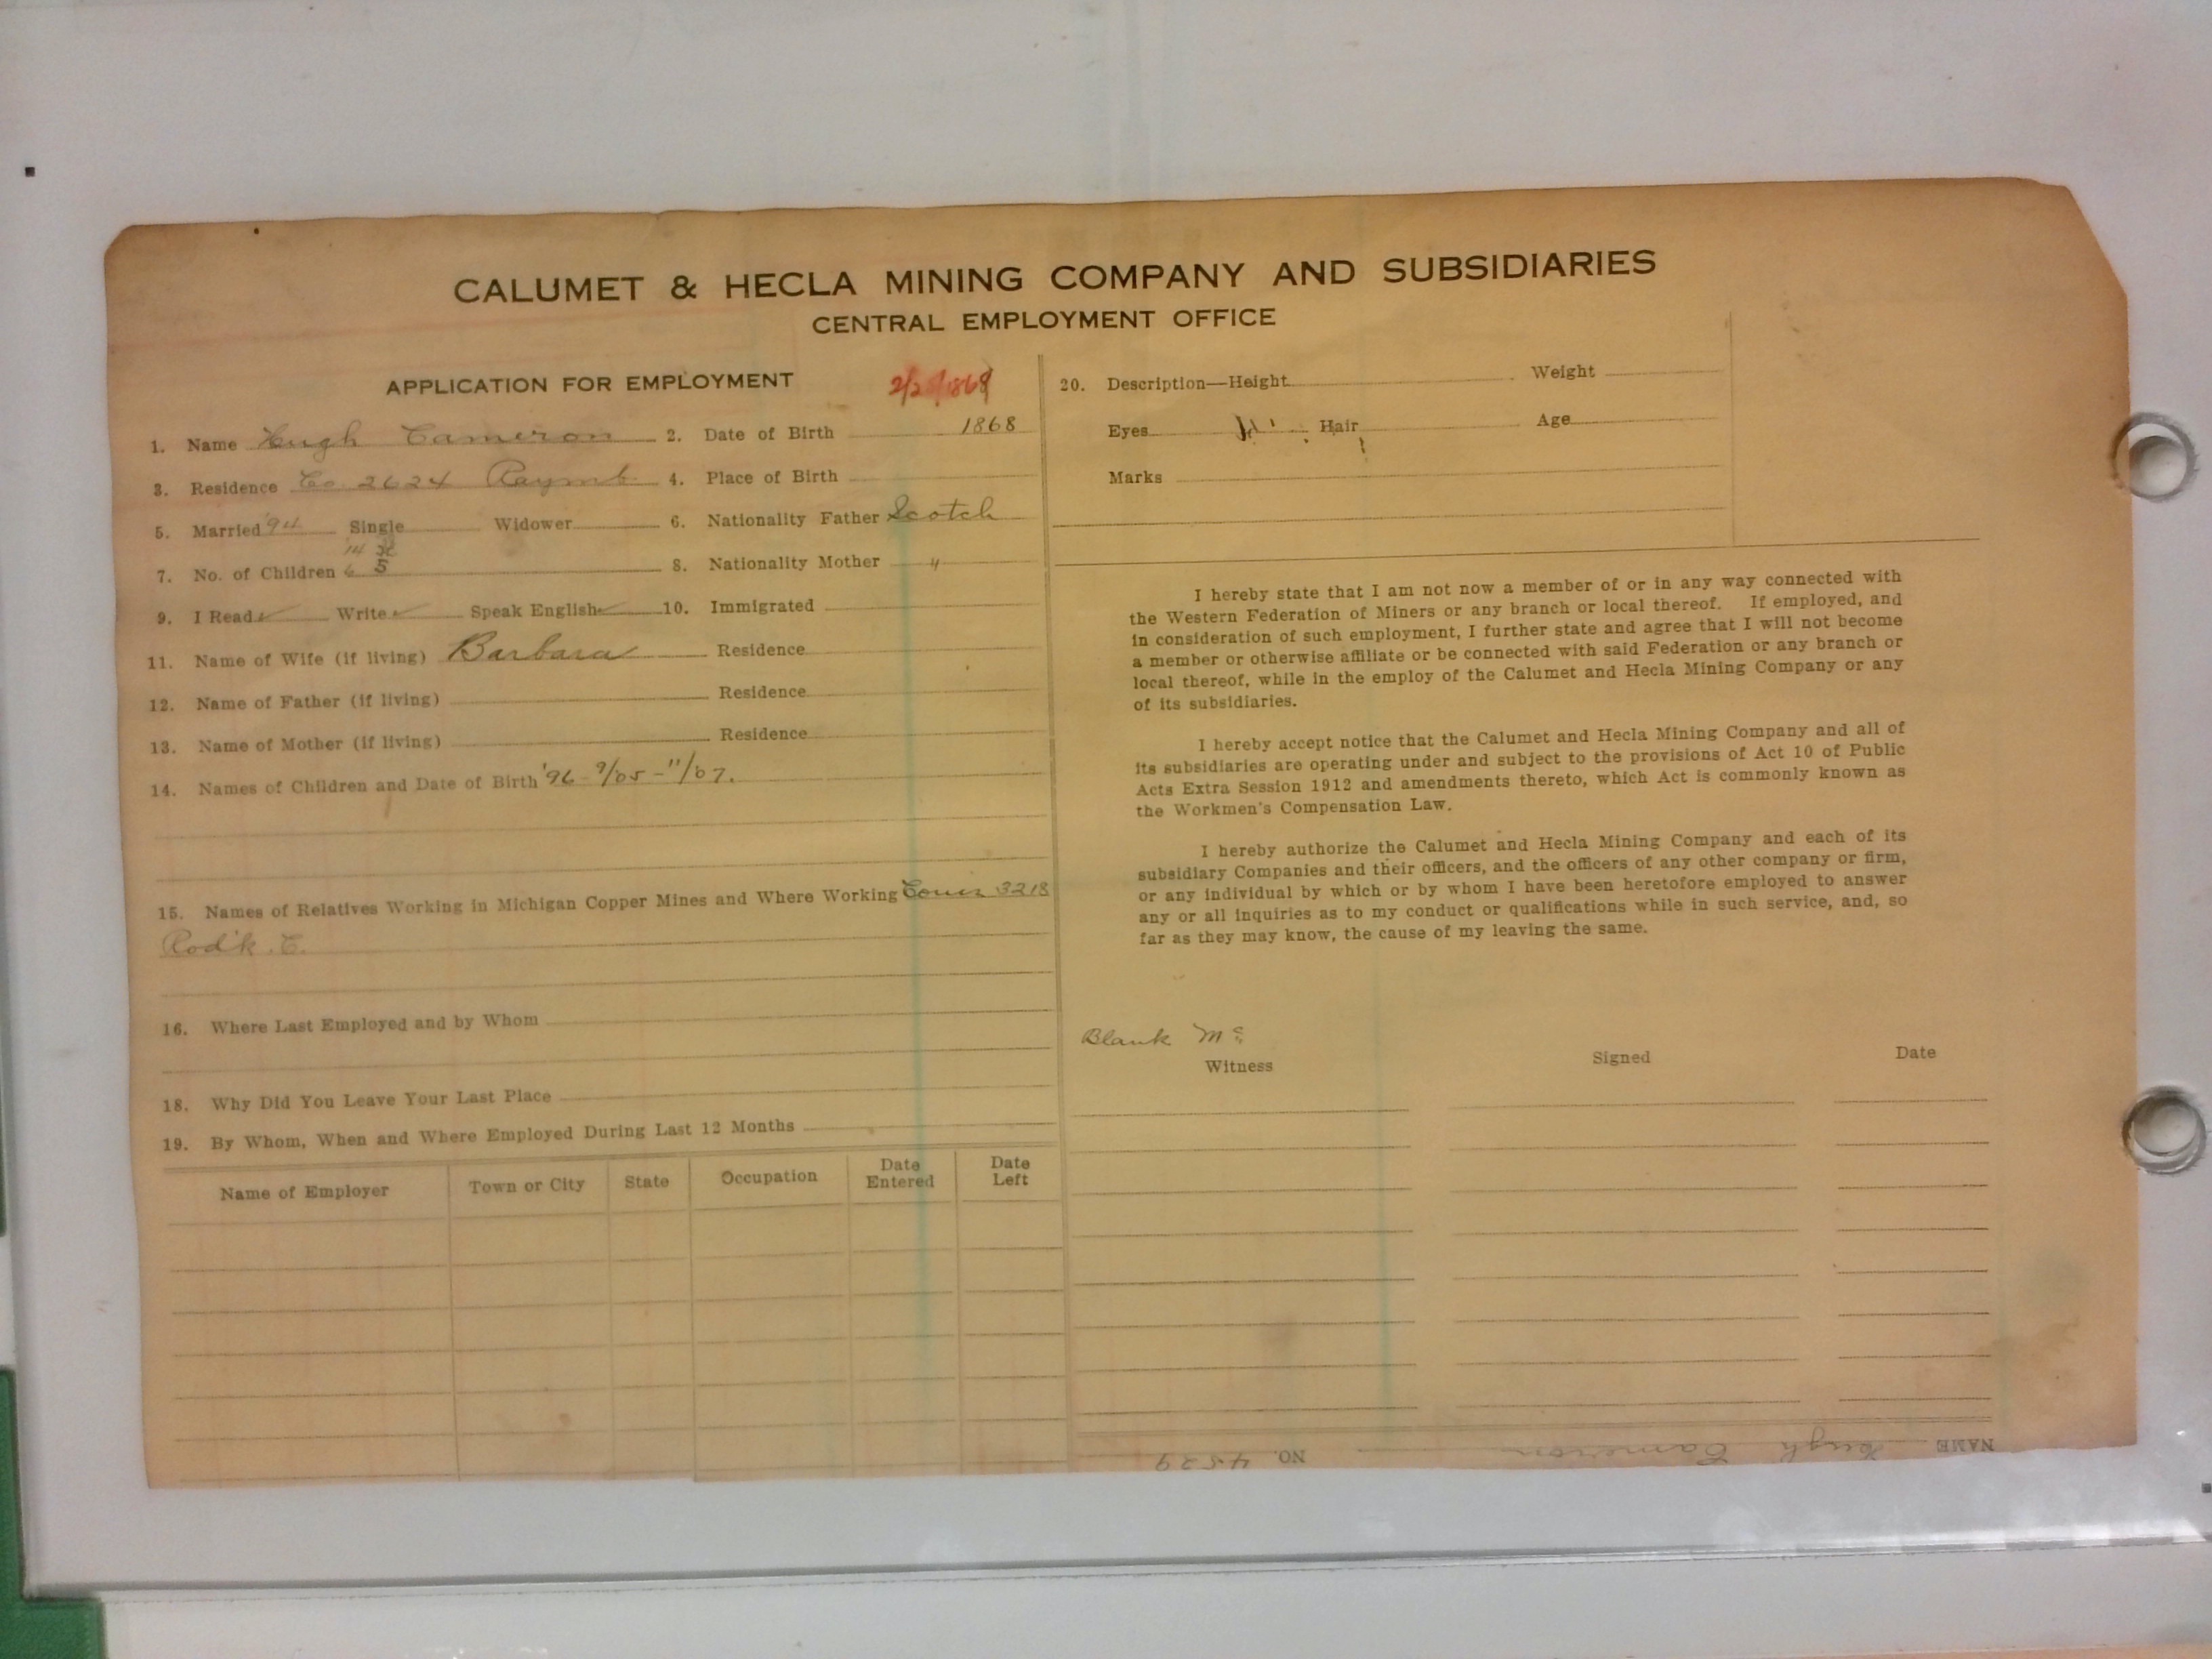 CALUMET & HECLA MINING COMPANY AND SUBSIDIARIES
CENTRAL EMPLOYMENT OFFICE
APPLICATION FOR EMPLOYMENT
1. Name Hugh Cameron 2. Date of Birth 1868
3. Residence Co. 2624 Raymb. 4. Place of Birth
5. Married '94 Single Widower 6. Nationality Father Scotch
'14
7. No. of Children 6 5 8. Nationality Mother "
9. I Read ✓ Write ✓ Speak English ✓ 10. Immigrated
11. Name of Wife (if living) Barbara Residence
12. Name of Father (if living) Residence
13. Name of Mother (if living) Residence
14. Names of Children and Date of Birth '96 - 9/05 - 11/07.
15. Names of Relatives Working in Michigan Copper Mines and Where Working 3218
Rod'k. C.
16. Where Last Employed and by Whom
18. Why Did You Leave Your Last Place
19. By Whom, When and Where Employed During Last 12 Months
Name of Employer Town or City State Occupation Date Entered Date Left
20. Description—Height Weight
Eyes Hair Age
Marks
I hereby state that I am not now a member of or in any way connected with
the Western Federation of Miners or any branch or local thereof. If employed, and
in consideration of such employment, I further state and agree that I will not become
a member or otherwise affiliate or be connected with said Federation or any branch or
local thereof, while in the employ of the Calumet and Hecla Mining Company or any
of its subsidiaries.
I hereby accept notice that the Calumet and Hecla Mining Company and all of
its subsidiaries are operating under and subject to the provisions of Act 10 of Public
Acts Extra Session 1912 and amendments thereto, which Act is commonly known as
the Workmen's Compensation Law.
I hereby authorize the Calumet and Hecla Mining Company and each of its
subsidiary Companies and their officers, and the officers of any other company or firm,
or any individual by which or by whom I have been heretofore employed to answer
any or all inquiries as to my conduct or qualifications while in such service, and, so
far as they may know, the cause of my leaving the same.
Blank Mc
Witness Signed Date
NAME Hugh Cameron NO. 4529